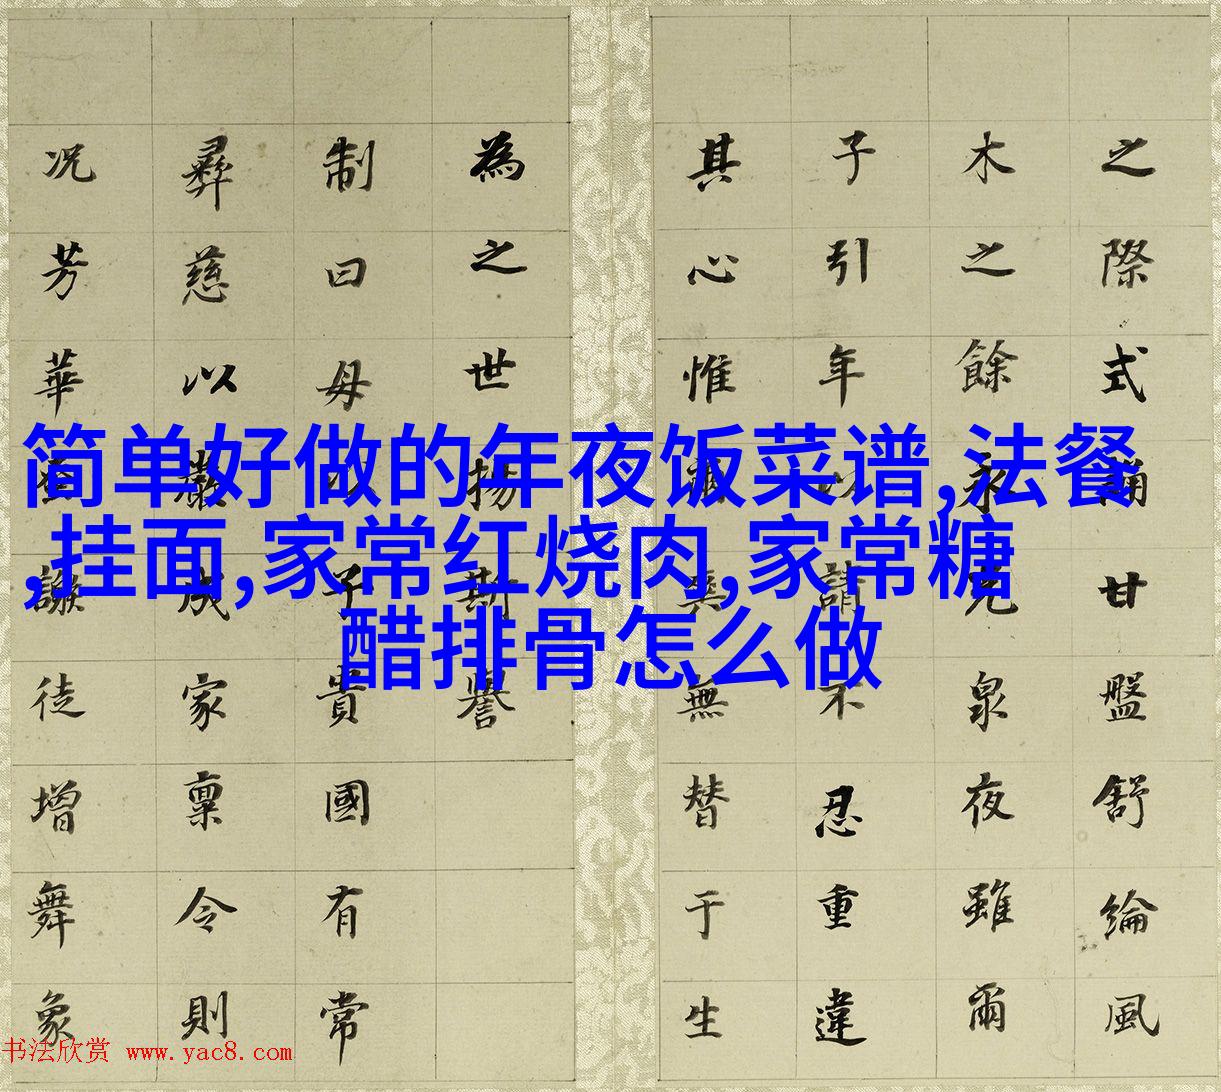 简单好做的年夜饭菜谱,法餐
,挂面,家常红烧肉,家常糖
醋排骨怎么做
之際式甘盤舒綸風
木之餘永克泉夜雖爾
子引年以請不忍重違
其心惟無替于生
為之世揚斯譽
制曰母以子貴國有常
彝慈以嚴成家稟令則
况芳華徒增舞象
书法欣赏 www.yac8.com